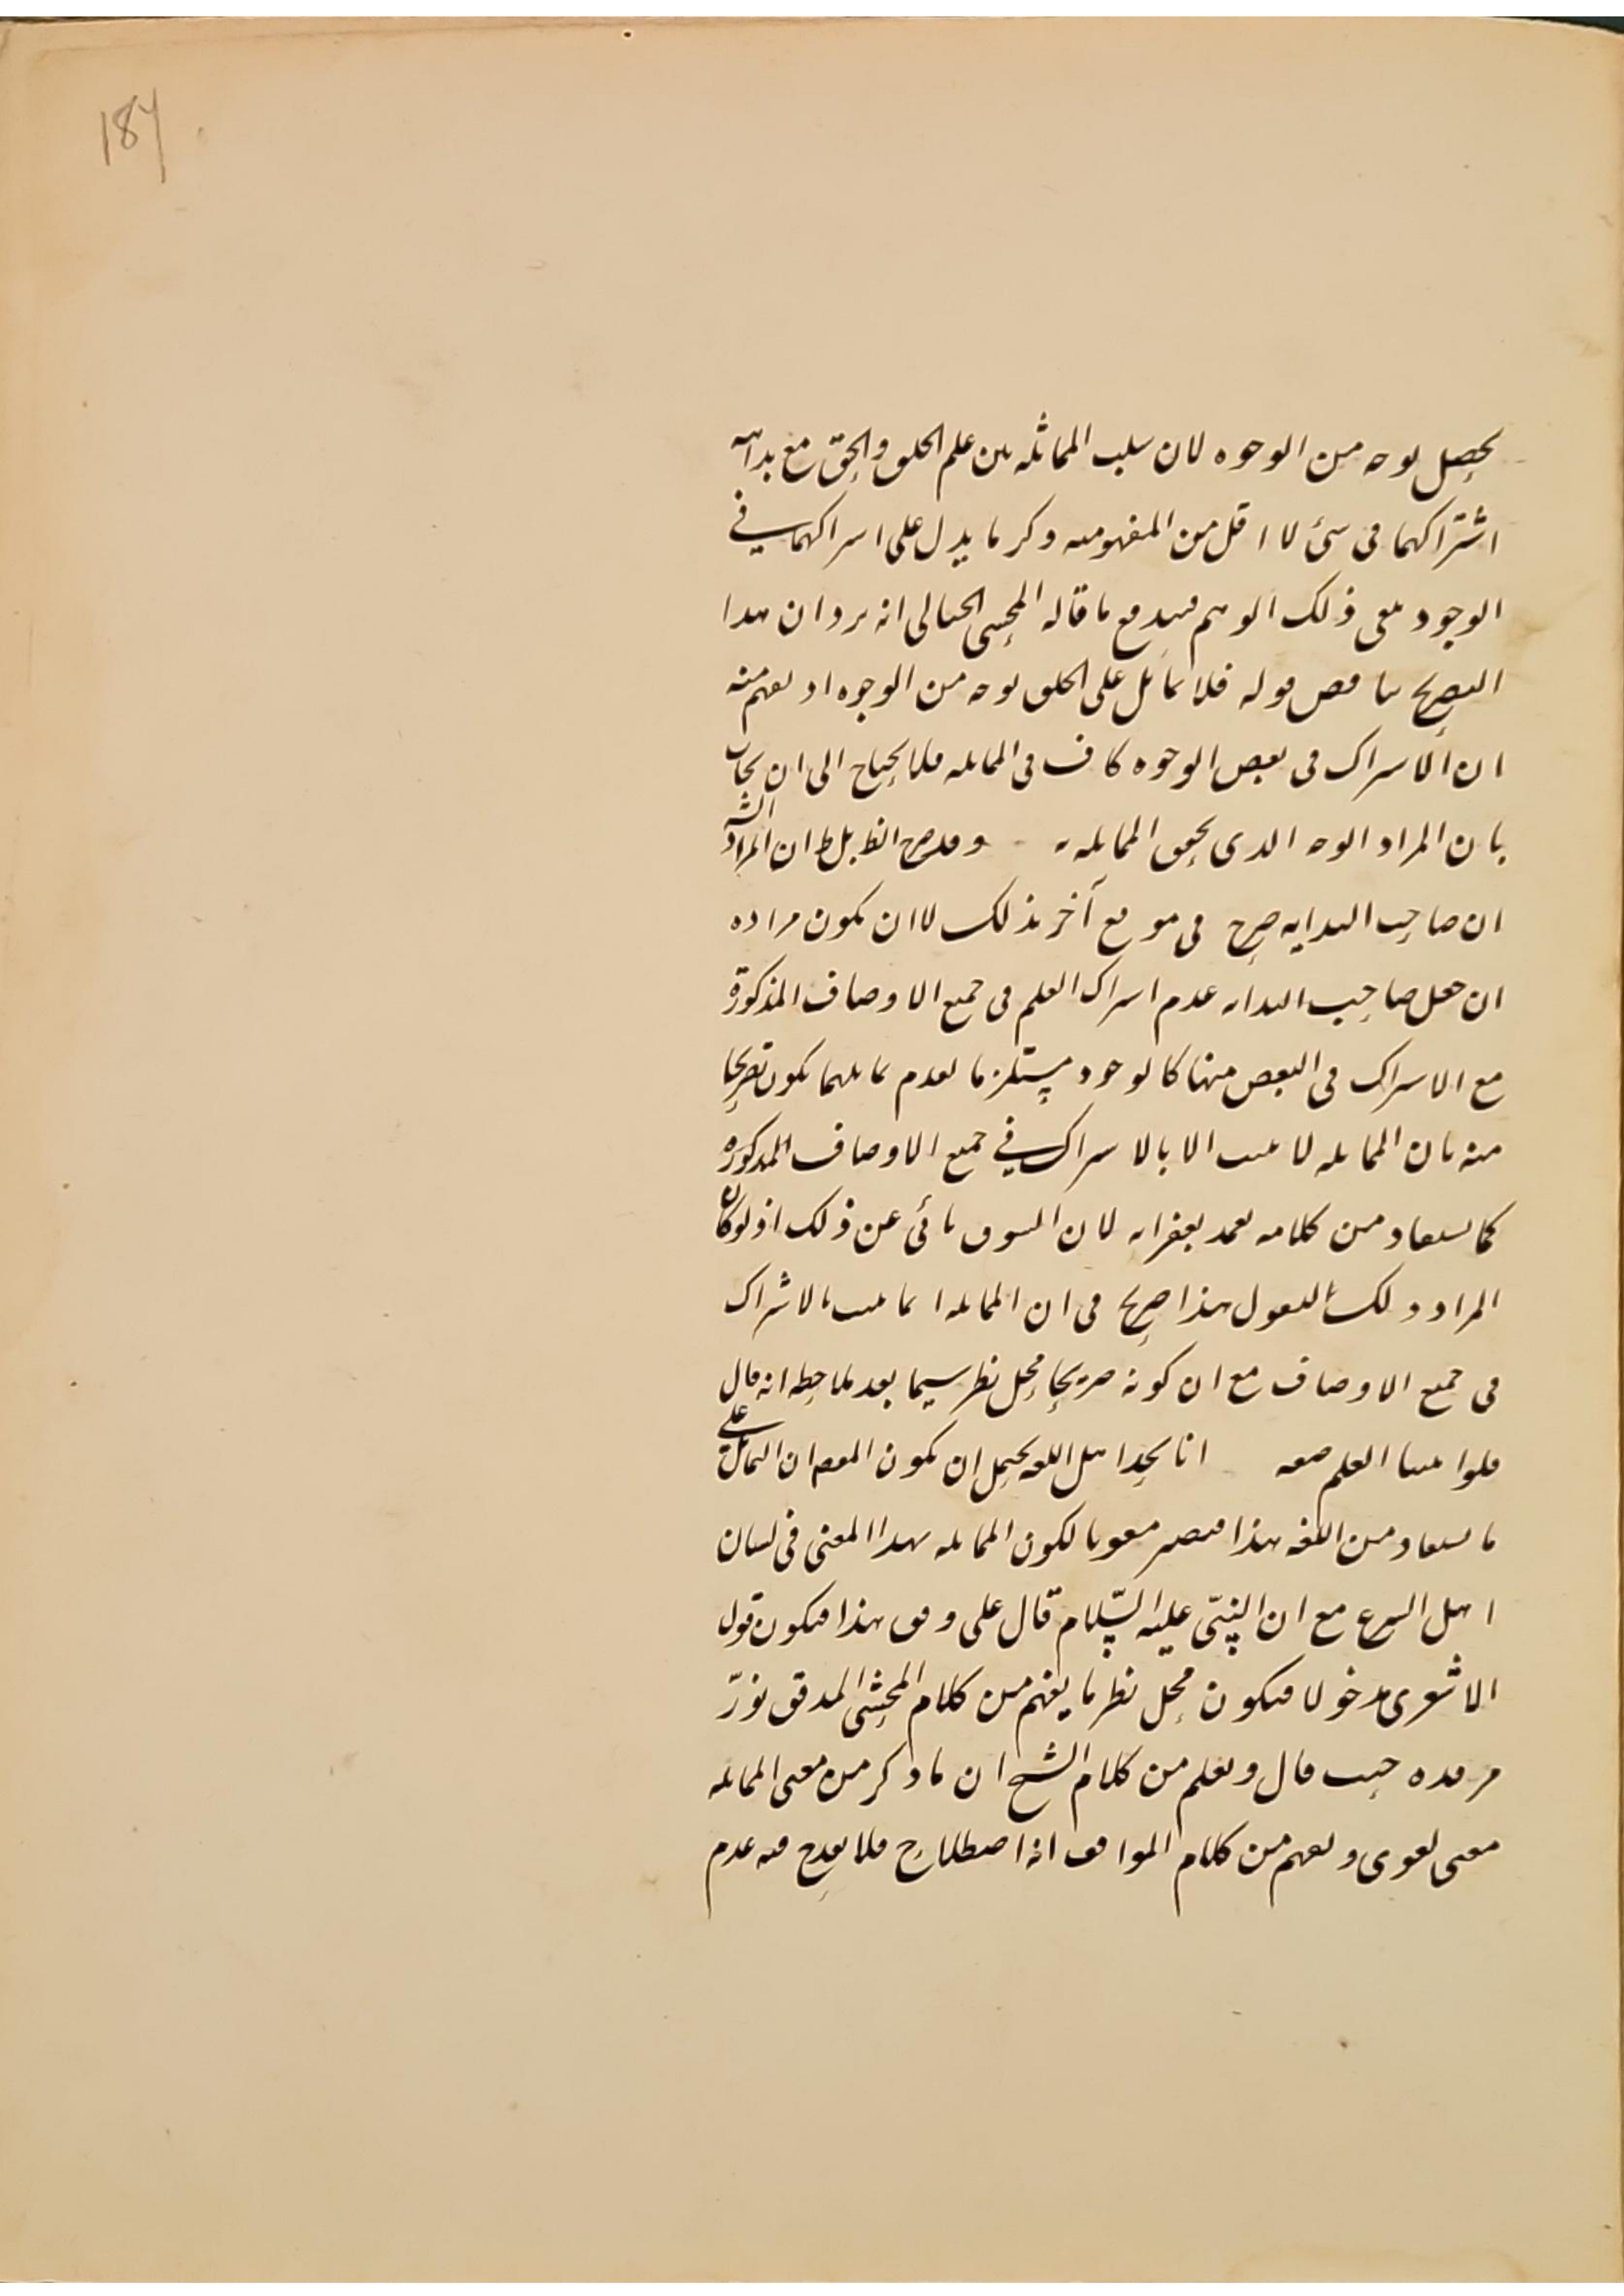 187
يحصل بوجه من الوجوه لان سلب المماثلة بين علم الخلق والحق مع بداهة
اشتراكهما فى شئ لا اقل من المفهومية وذكر ما يدل على اشتراكهما فى
الوجود ينفى ذلك الوهم فيندفع ما قاله المحشى الخيالى انه يرد ان هذا
التصريح يناقض قوله فلا يماثل على الخلق بوجه من الوجوه اذ يفهم منه
ان الاشتراك فى بعض الوجوه كاف فى المماثلة فلا يحتاج الى ان يجاب
بان المراد الوجه الذى يحقق المماثلة وقد صرح الظ بل ط ان المراد الش
ان صاحب البداية صرح فى موضع آخر بذلك لا ان يكون مراده
ان جعل صاحب البداية عدم اشتراك العلم فى جميع الاوصاف المذكورة
مع الاشتراك فى البعض منها كالوجود مستلزما لعدم تماثلهما يكون تصريحا
منه بان المماثلة لا تثبت الا بالاشتراك فى جميع الاوصاف المذكورة
كما يستفاد من كلامه لان السوق نائى عن ذلك اذ لو كان
المراد ذلك لقول هذا صريح فى ان المماثلة انما تثبت بالاشتراك
فى جميع الاوصاف مع ان كونه صريحا محل نظر سيما بعد ملاحظة انه قال
فلو اثبتنا العلم صفة انا نجد اهل اللغة يحتمل ان يكون المقص ان التماثل على
ما يستفاد من اللغة هذا فيصير مقويا لكون المماثلة بهذا المعنى فى لسان
اهل الشرع مع ان النبى عليه السّلام قال على وفق هذا فيكون قول
الاشعرى مدخولا فيكون محل نظر ما يفهم من كلام المحشى المدقق نوّر
مرقده حيث قال ويعلم من كلام الشيخ ان ما ذكر من معنى المماثلة
معنى لغوى ويفهم من كلام المواقف انه اصطلاح فلا يقدح فيه عدم